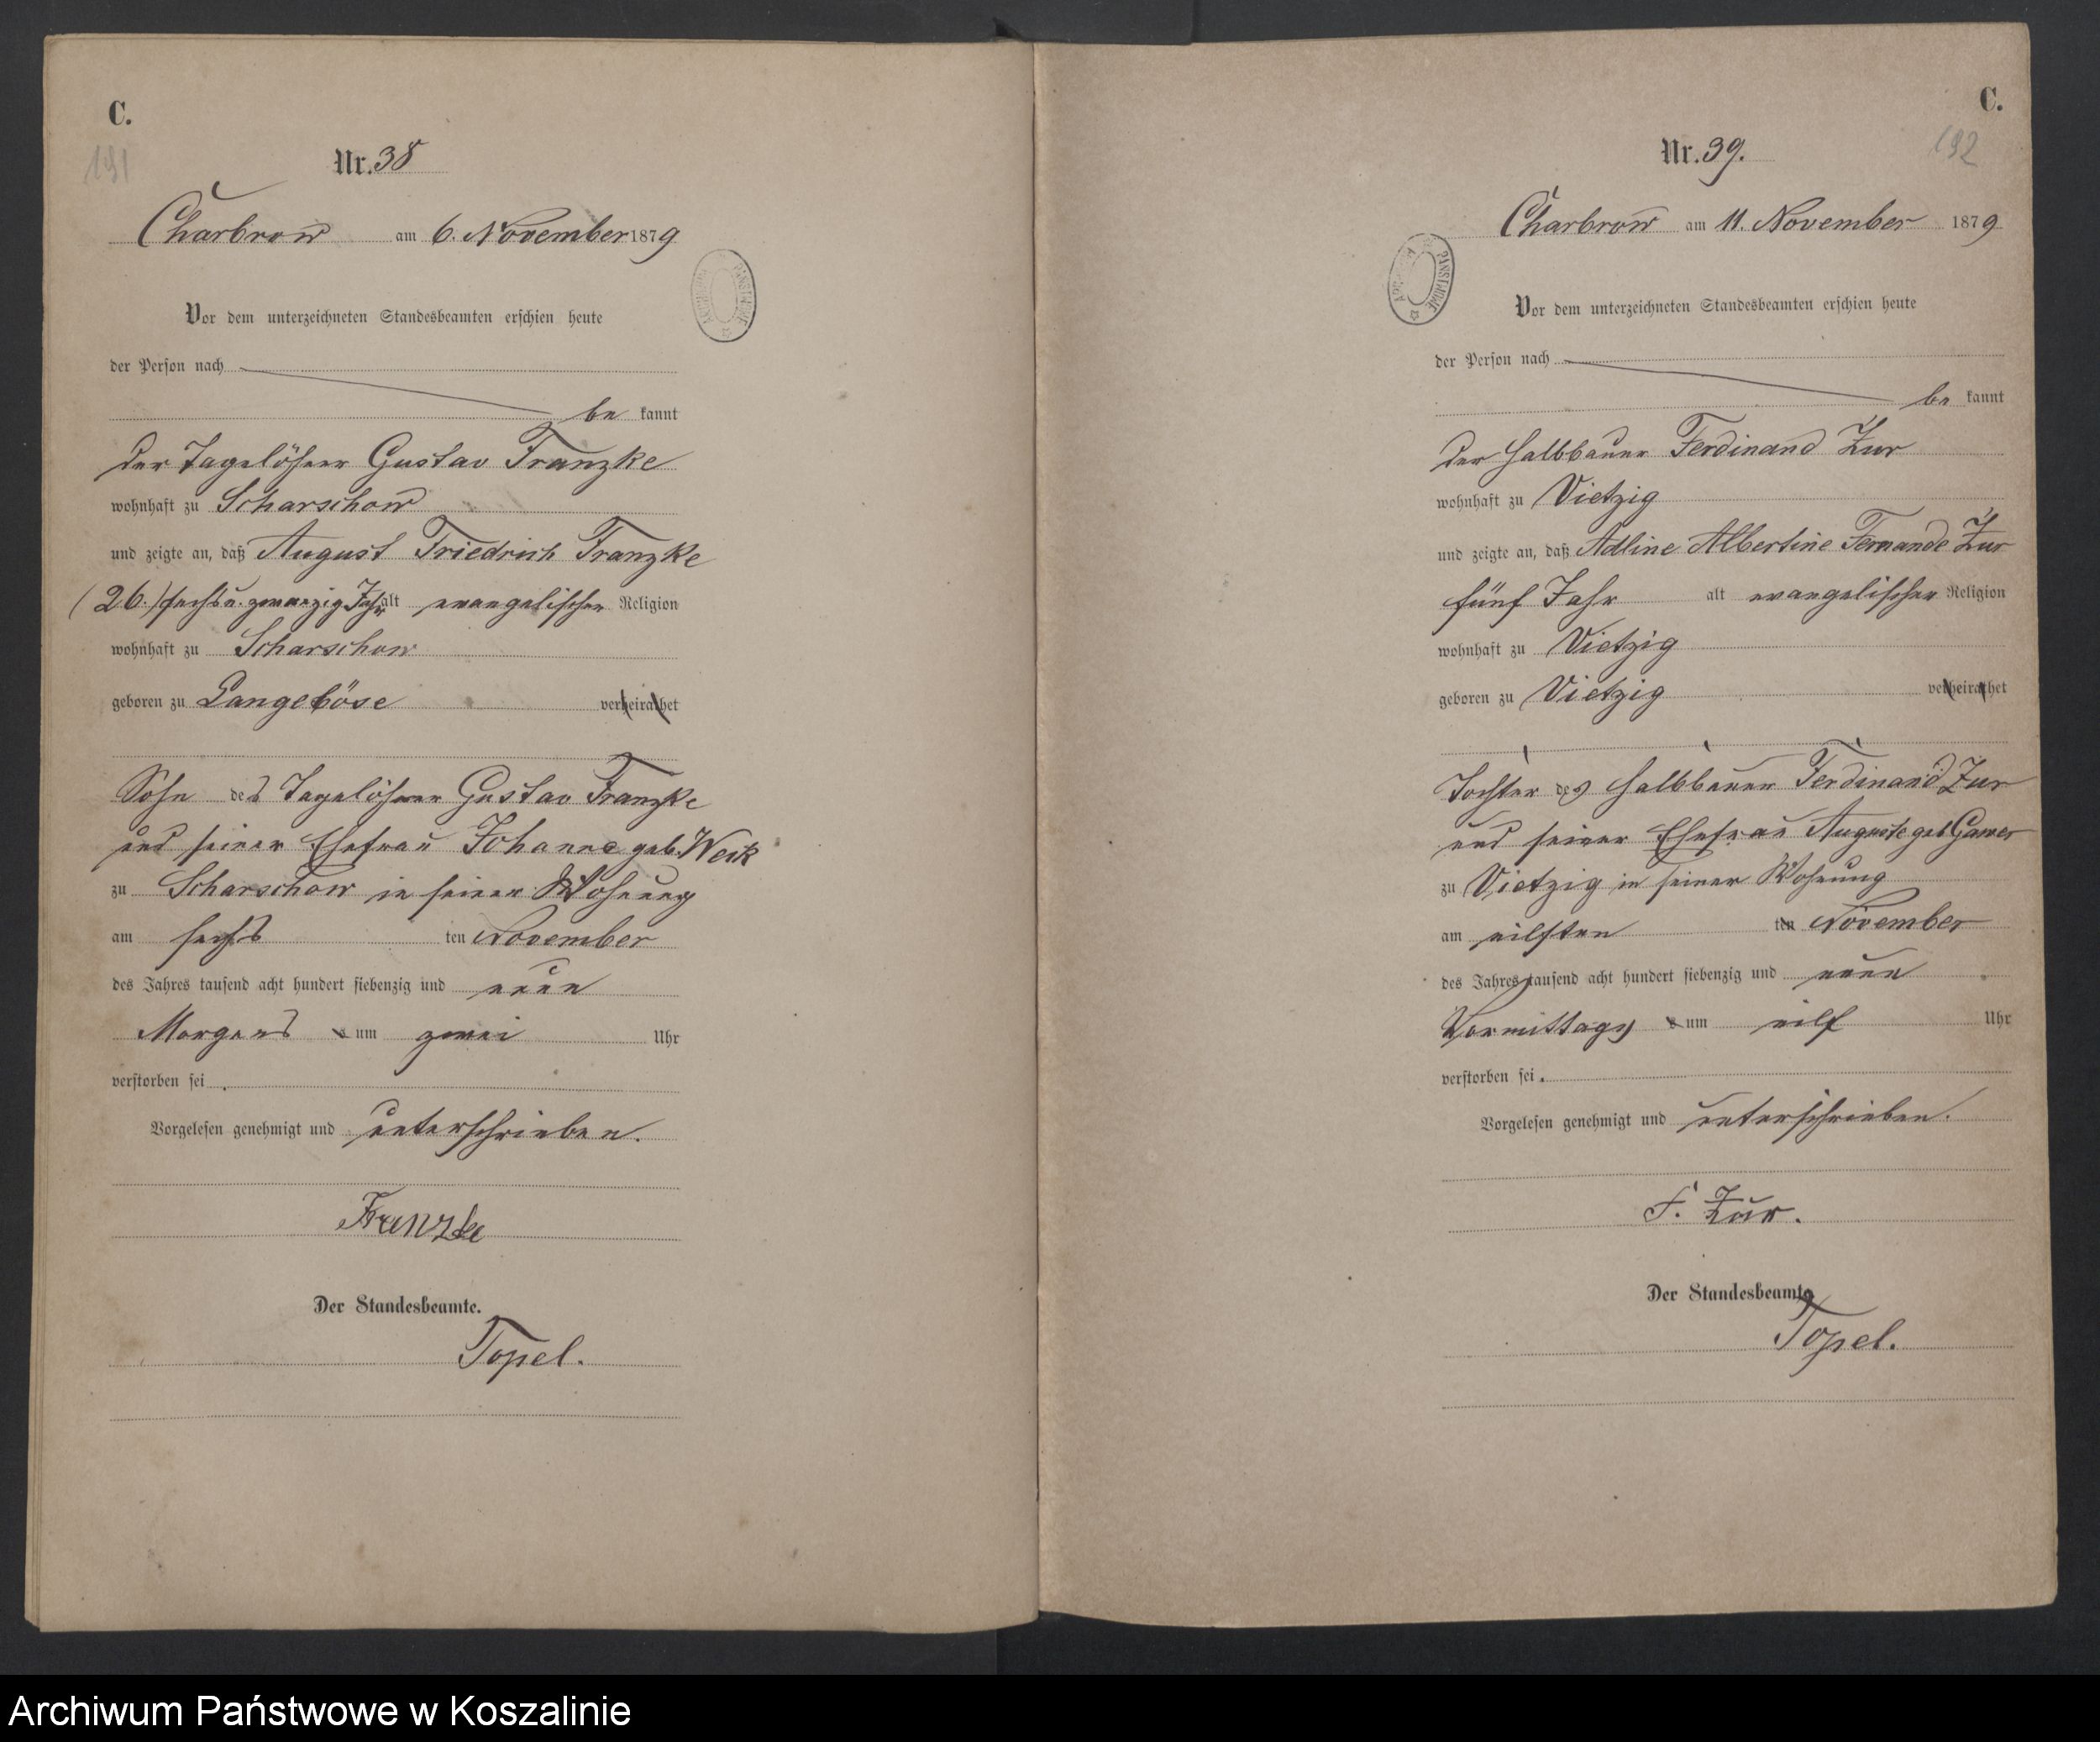 C.
191
Nr. 38
Charbrow am 6. November 1879
Vor dem unterzeichneten Standesbeamten erschien heute
der Person nach
be kannt
der Tagelöhner Gustav Franzke
wohnhaft zu Scharschow
und zeigte an, daß August Friedrich Franzke
(26.) sechs u. zwanzig Jahr alt evangelischer Religion
wohnhaft zu Scharschow
geboren zu Langeböse verheirathet
Sohn des Tagelöhner Gustav Franzke
und seiner Ehefrau Johanne geb. Werk
zu Scharschow in seiner Wohnung
am sechs ten November
des Jahres tausend acht hundert siebenzig und neun
Morgens um zwei Uhr
verstorben sei.
Vorgelesen genehmigt und unterschrieben.
Franzke
Der Standesbeamte.
Topel.
C.
192
Nr. 39.
Charbrow am 11. November 1879
Vor dem unterzeichneten Standesbeamten erschien heute
der Person nach
be kannt
der Halbbauer Ferdinand Zur
wohnhaft zu Vietzig
und zeigte an, daß Adline Albertine Fernande Zur
fünf Jahr alt evangelischer Religion
wohnhaft zu Vietzig
geboren zu Vietzig verheirathet
Tochter des Halbbauer Ferdinand Zur
und seiner Ehefrau Auguste geb Gamer
zu Vietzig in seiner Wohnung
am eilften ten November
des Jahres tausend acht hundert siebenzig und neun
Vormittags um eilf Uhr
verstorben sei.
Vorgelesen genehmigt und unterschrieben.
F. Zur.
Der Standesbeamte
Topel.
Archiwum Państwowe w Koszalinie